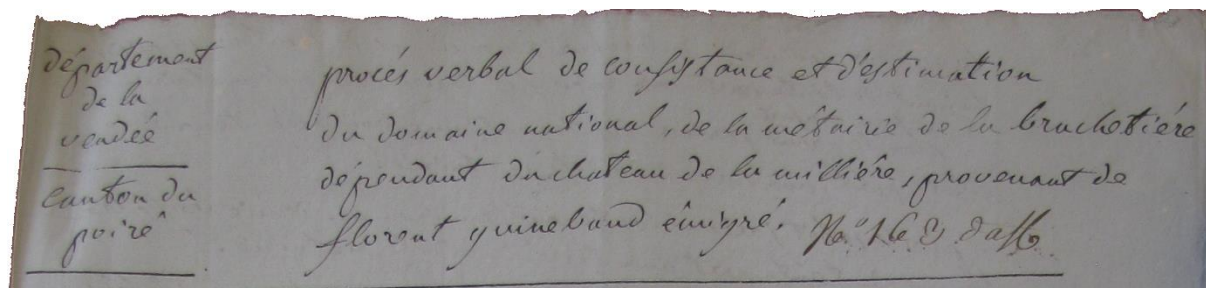 département
de la
vendée
canton du
poiré
procés verbal de consistance et d'estimation
du domaine national, de la métairie de la brachetiére
dépendant du chateau de la milliére, provenant de
florent guinebaud émigré. N.º 163